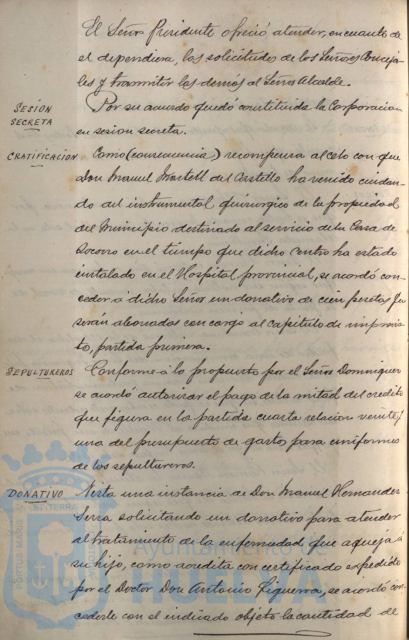 El Señor Presidente ofreció atender, en cuanto de
el dependiera, las solicitudes de los Señores Conceja-
les y tramitir las demás al Señor Alcalde.
SESION SECRETA
Por su acuerdo quedó constituida la Corporacion
en sesion secreta.
GRATIFICACION
Como (consecuencia) recompensa al celo con que
Don Manuel Martell del Castillo ha venido cuidan-
do del instrumental quirurgico de la propiedad
del Municipio destinado al servicio de la Casa de
Socorro en el tiempo que dicho Centro ha estado
instalado en el Hospital provincial, se acordó con-
ceder á dicho Señor un donativo de cien pesetas que
serán abonadas con cargo al capitulo de imprevis-
to, partida primera.
SEPULTUREROS
Conforme á lo propuesto por el Señor Dominguez
se acordó autorizar el pago de la mitad del credito
que figura en la partida cuarta relacion veinte y
una del presupuesto de gastos para uniformes
de los sepultureros.
DONATIVO
Vista una instancia de Don Manuel Hernandez
Serra solicitando un donativo para atender
al tratamiento de la enfermedad que aqueja á
su hijo, como acredita con certificado expedido
por el Doctor Don Antonio Figueroa, se acordó con-
cederle con el indicado objeto la cantidad de
Ayuntamiento de
HUELVA
PORTUS MARIS